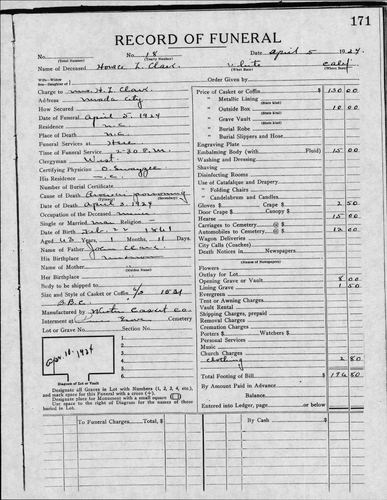 171
RECORD OF FUNERAL
No. No. 18 Date April 5 1924
(Total Number) (Yearly Number)
Name of Deceased Horace L. Clark. White Calif
(What Race) (Where Born)
Wife—Widow
Son—Daughter of
Order Given by
Charge to Mrs. H. L. Clark.
Address City
How Secured
Date of Funeral April 5, 1924
Residence N.C.
Place of Death N.C.
Funeral Services at Here
Time of Funeral Service 2-30 P.M.
Clergyman West
Certifying Physician
His Residence N.C.
Number of Burial Certificate
Cause of Death poisoning
(Primary) (Secondary)
Date of Death April 3, 1924
Occupation of the Deceased Miner
Single or Married Religion
Date of Birth Feb. 22 1861
Aged 63 Years, 1 Months, 11 Days.
Name of Father John Clark
His Birthplace
Name of Mother
(Maiden Name)
Her Birthplace
Body to be shipped to
Size and Style of Casket or Coffin 6/3 1531
S.B.C.
Manufactured by Casket Co.
Interment at Pine Grove Cemetery
Lot or Grave No. Section No.
Apr. 18. 1924
1
2
3
4
5
6
Diagram of Lot or Vault
Designate all Graves in Lot with Numbers (1, 2, 3, 4, etc.),
and mark space for this Funeral with a cross (+).
Designate place for Monument with a small square
Use space to the right of Diagram for the names of those
buried in Lot.
Price of Casket or Coffin $ 130 00
" Metallic Lining
(State Kind)
" Outside Box 10 00
(State Kind)
" Grave Vault
(State Kind)
" Burial Robe
" Burial Slippers and Hose
Engraving Plate
Embalming Body (with Fluid) 15 00
Washing and Dressing
Shaving
Disinfecting Rooms
Use of Catafalque and Drapery
" Folding Chairs
" Candelabrum and Candles
Gloves $ Crape $ 2 50
Door Crape $ Canopy $
Hearse 15 00
Carriages to Cemetery @ $
Automobiles to Cemetery @ $ 12 00
Wagon Deliveries
City Calls (Coaches)
Death Notices in Newspapers
(Names of Newspapers)
Flowers
Outlay for Lot
Opening Grave or Vault 8 00
Lining Grave 1 50
Evergreen
Tent or Awning Charges
Vault Rental
Shipping Charges, prepaid
Removal Charges
Cremation Charges
Porters $ Watchers $
Personal Services
Music
Church Charges
Clothing 2 80
Total Footing of Bill $ 196 80
By Amount Paid in Advance
Balance
Entered into Ledger, page or below
To Funeral Charges—Total, $ By Cash in Advance—Total, $